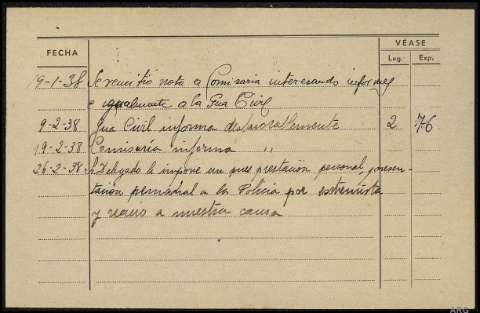 VÉASE
FECHA
Leg. Exp.
19-1-38 Se remitió nota a Comisaria interesando informes
e igualmente a la Gua Civil
9-2-38 Gua Civil informa desfavorablemente 2 76
19-2-38 Comisaría informa "
26-2-38 Delegado le impone un mes prestación personal, presen-
tación semanal a la Policia por extremista
y reacio a nuestra causa
ARG